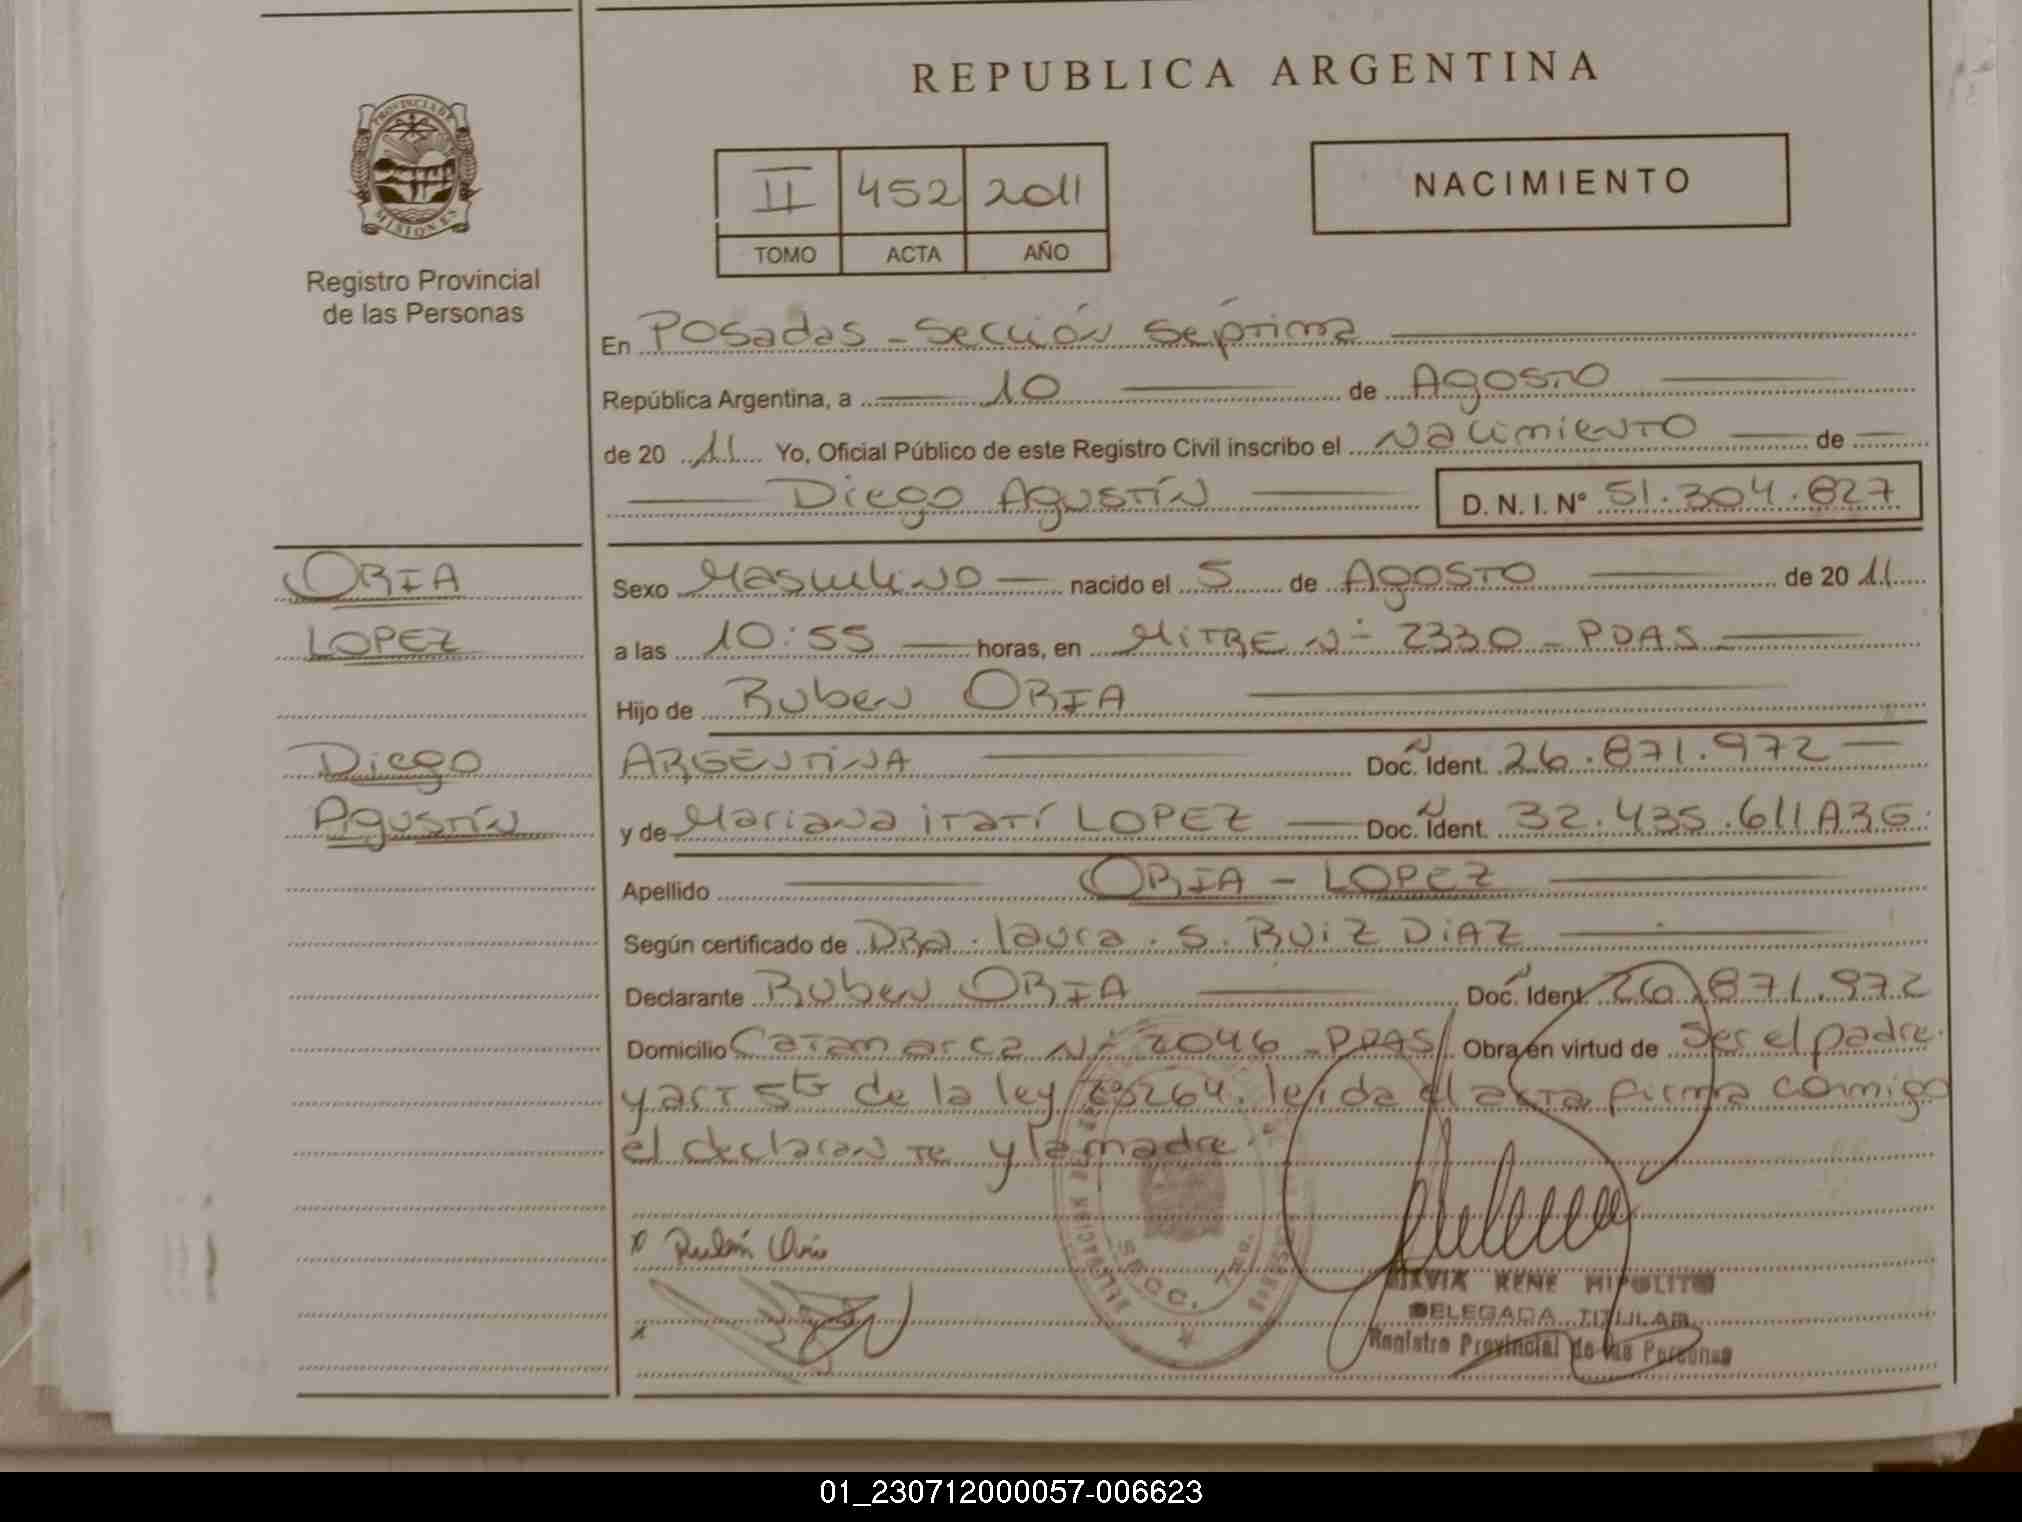 REPUBLICA ARGENTINA
PROVINCIA DE
MISIONES
Registro Provincial
de las Personas
II 452 2011
TOMO ACTA AÑO
NACIMIENTO
En Posadas - Sección Séptima
República Argentina, a 10 de Agosto
de 20 11 Yo, Oficial Público de este Registro Civil inscribo el Nacimiento de
Diego Agustín D. N. I. Nº 51.304.827
ORIA
LOPEZ
Diego
Agustín
Sexo Masculino nacido el 5 de Agosto de 20 11
a las 10:55 horas, en MITRE Nº 2330 - PDAS
Hijo de Ruben ORIA
ARGENTINA Doc. Ident. 26.871.972
y de Mariana itatí LOPEZ Doc. Ident. 32.435.611 ARG.
Apellido ORIA - LOPEZ
Según certificado de DRa. laura. S. RUIZ DIAZ
Declarante Ruben ORIA Doc. Ident. 26.871.972
Domicilio Catamarca Nº 2046 - PDAS Obra en virtud de Ser el padre.
y art 5to de la ley 18264. leída el acta firma conmigo
el declarante y la madre.
Rubén Oria
SECC. 7ma.
RENE HIPOLITO
DELEGADA TITULAR
Registro Provincial de las Personas
01_230712000057-006623